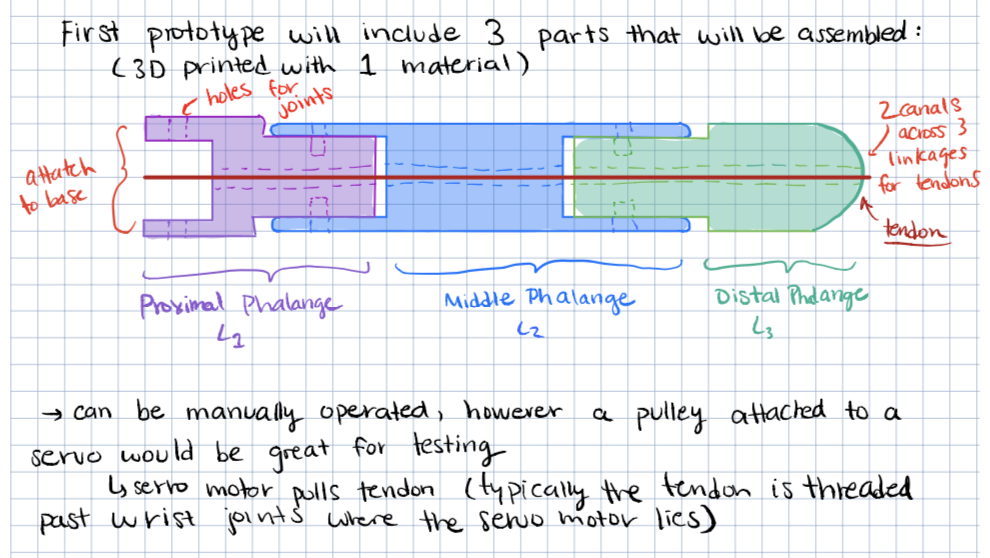 First prototype will include 3 parts that will be assembled:
(3D printed with 1 material)
holes for
joints
2 canals
across 3
linkages
for tendons
attatch
to base
tendon
Proximal Phalange
L1
Middle Phalange
L2
Distal Phalange
L3
→ can be manually operated, however a pulley attached to a
servo would be great for testing
↳ servo motor pulls tendon (typically the tendon is threaded
past wrist joints where the servo motor lies)